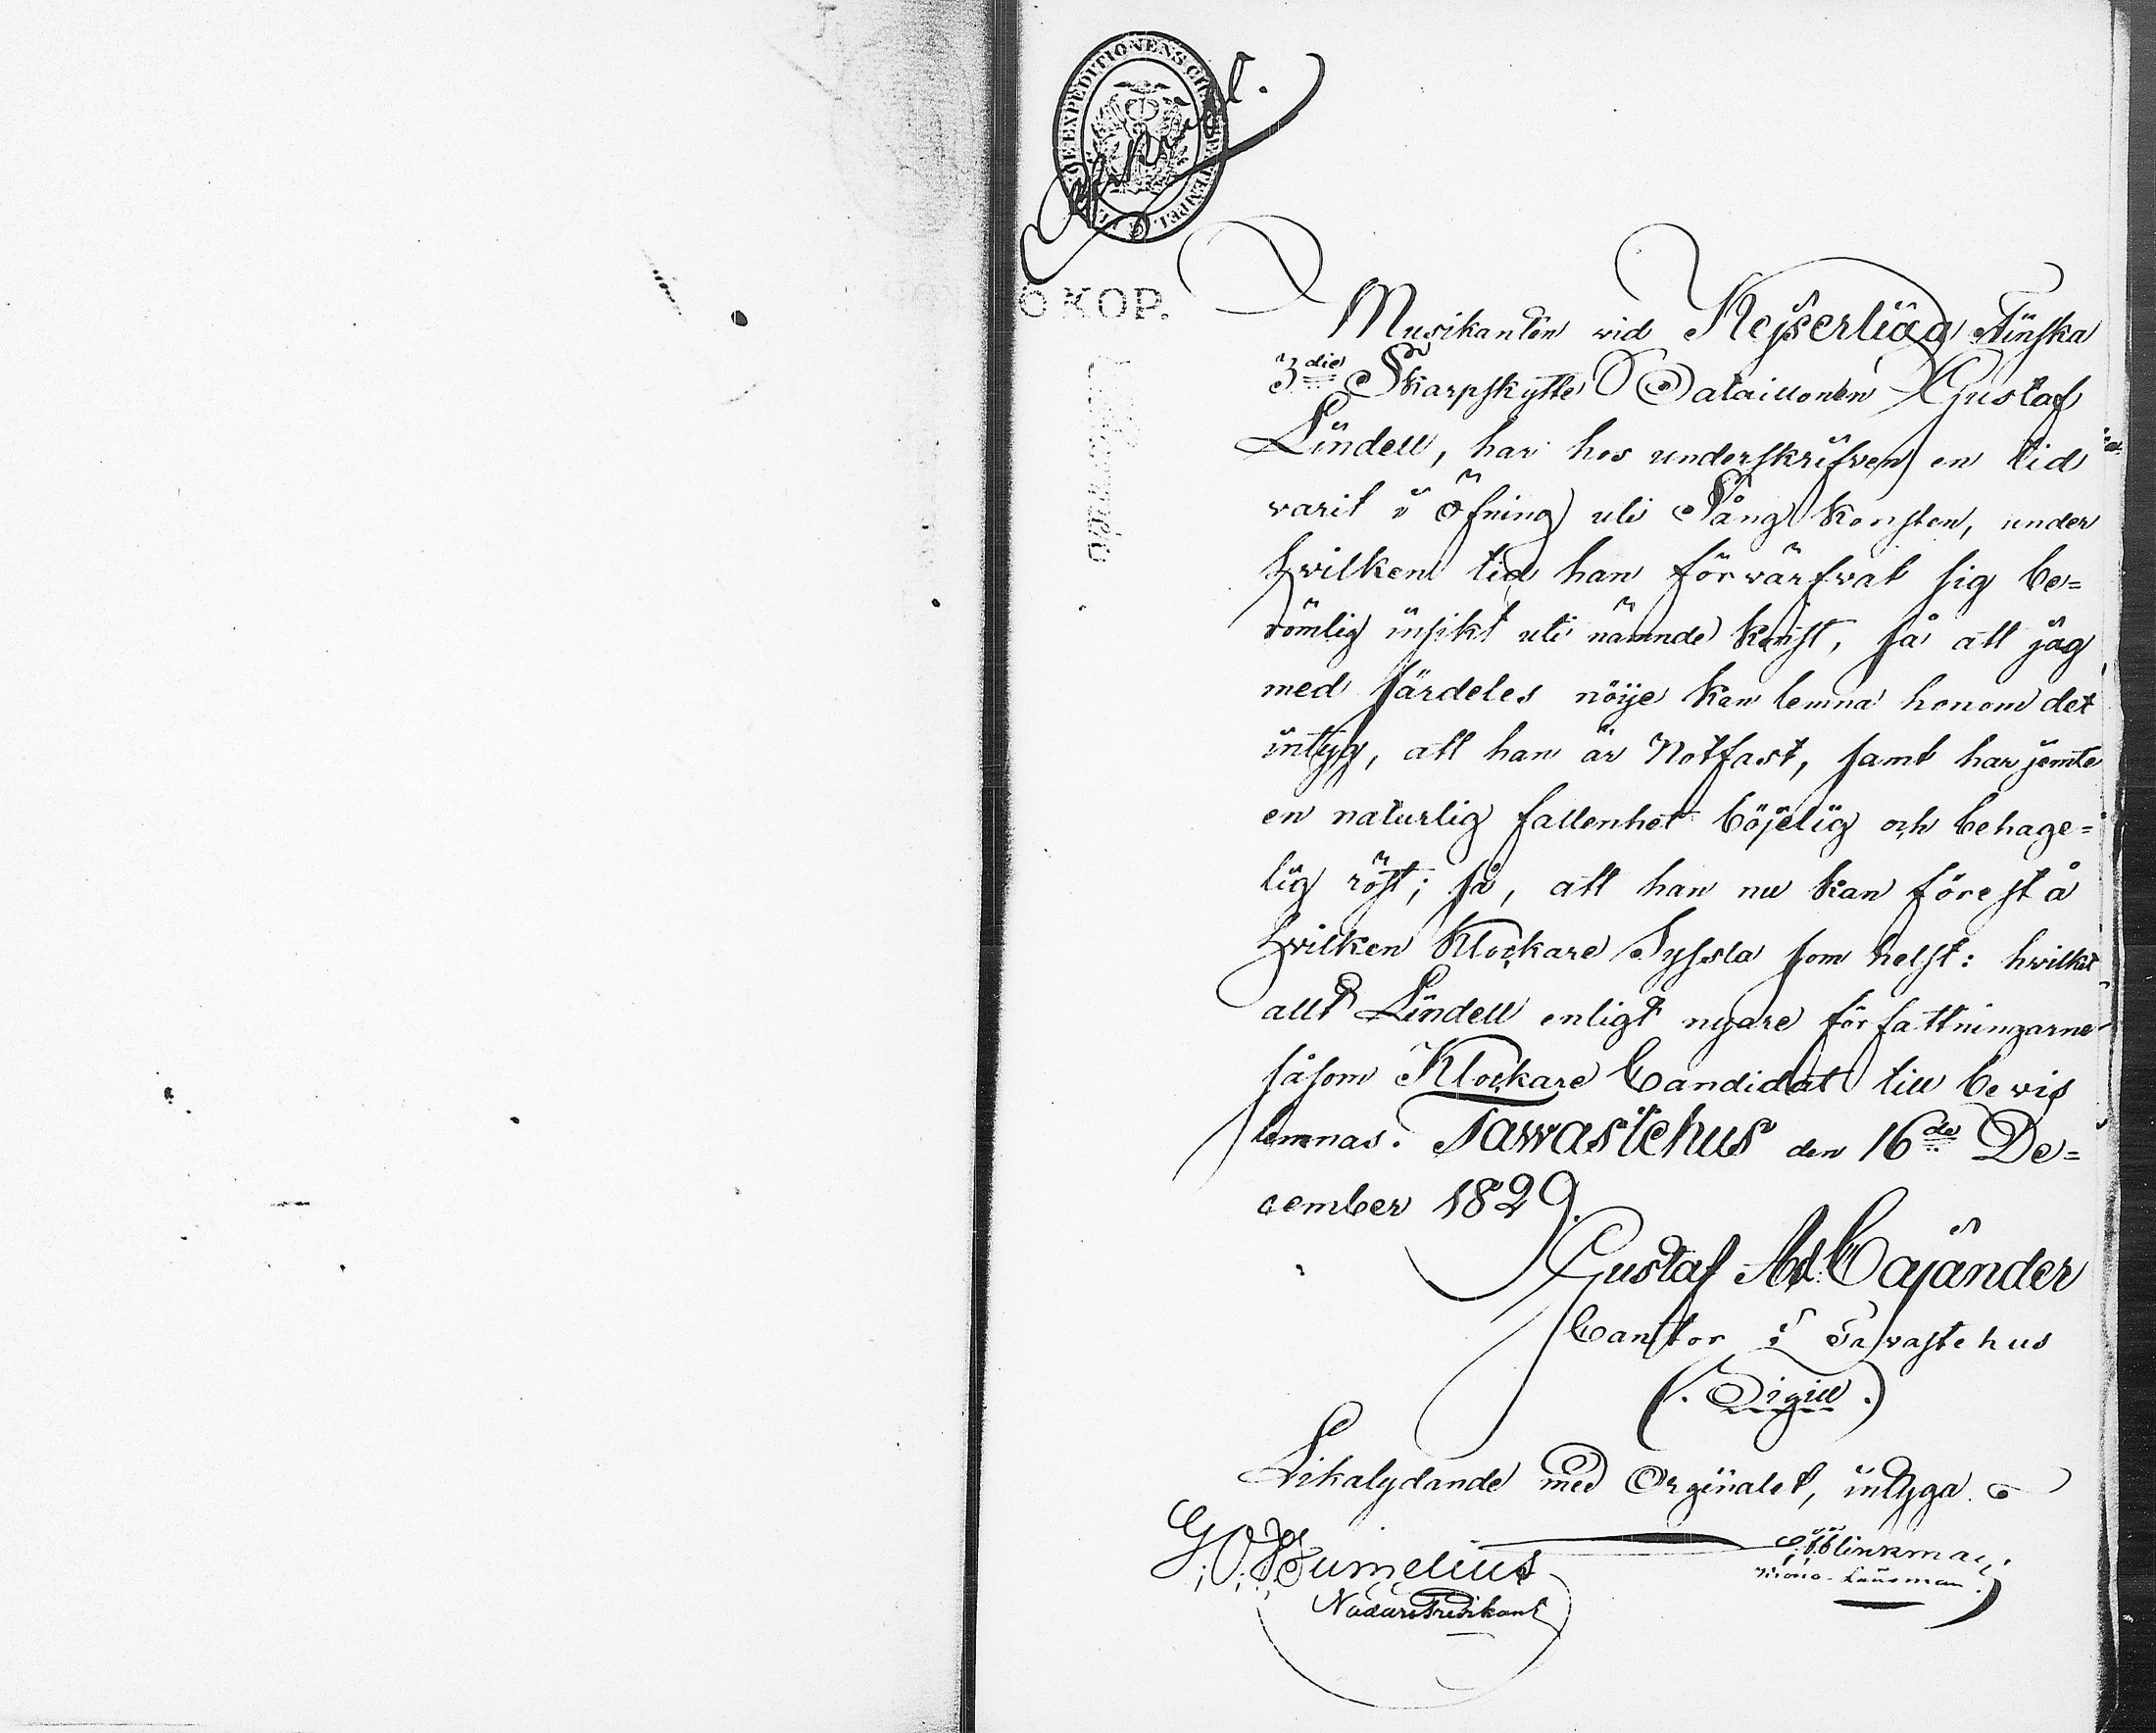 EXPEDITIONENS
STEMPEL
Afskrift.
0 KOP.
Musikanten vid Kejserliga Finska
3die Skarpskytte Bataillonen Gustaf
Lindell, har hos underskrifven en tid
varit i öfning uti Sång konsten, under
hvilken tid han förvärfvat sig be=
römlig insikt uti nämnde konst, så att jag
med särdeles nöije kan lemna honom det
intyg, att han är Notfast, samt har jemte
en naturlig fallenhet böjelig och behage=
lig röst; så, att han nu kan förestå
hvilken Klockare Syssla som helst: hvilket
allt Lindell enligt nyare författningarne
såsom Klockare Candidat till bevis
lemnas. Tawastehus den 16de De=
cember 1829.
Gustaf Ad. Cajander
Cantor i Tavastehus
(. Sigill .)
Likalydande med Orginalet, intyga
Krono-Länsman